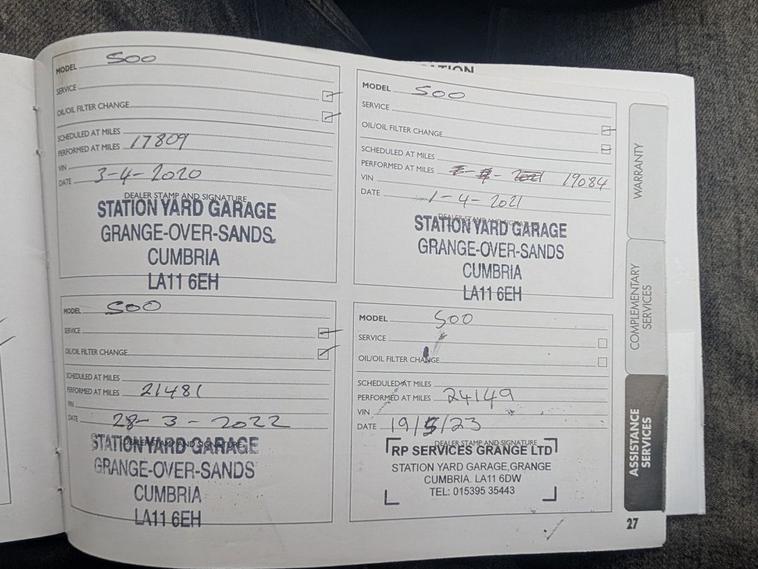 MODEL 500
SERVICE
OIL/OIL FILTER CHANGE
SCHEDULED AT MILES
PERFORMED AT MILES 17809
VIN
DATE 3-4-2020
DEALER STAMP AND SIGNATURE
STATION YARD GARAGE
GRANGE-OVER-SANDS,
CUMBRIA
LA11 6EH
MODEL 500
SERVICE
OIL/OIL FILTER CHANGE
SCHEDULED AT MILES
PERFORMED AT MILES 19084
VIN
DATE 1-4-2021
DEALER STAMP AND SIGNATURE
STATION YARD GARAGE
GRANGE-OVER-SANDS
CUMBRIA
LA11 6EH
MODEL 500
SERVICE
OIL/OIL FILTER CHANGE
SCHEDULED AT MILES
PERFORMED AT MILES 21481
VIN
DATE 28-3-2022
DEALER STAMP AND SIGNATURE
STATION YARD GARAGE
GRANGE-OVER-SANDS
CUMBRIA
LA11 6EH
MODEL 500
SERVICE
OIL/OIL FILTER CHANGE
SCHEDULED AT MILES
PERFORMED AT MILES 24149
VIN
DATE 19/5/23
DEALER STAMP AND SIGNATURE
RP SERVICES GRANGE LTD
STATION YARD GARAGE, GRANGE
CUMBRIA. LA11 6DW
TEL: 015395 35443
WARRANTY
COMPLEMENTARY
SERVICES
ASSISTANCE
SERVICES
27